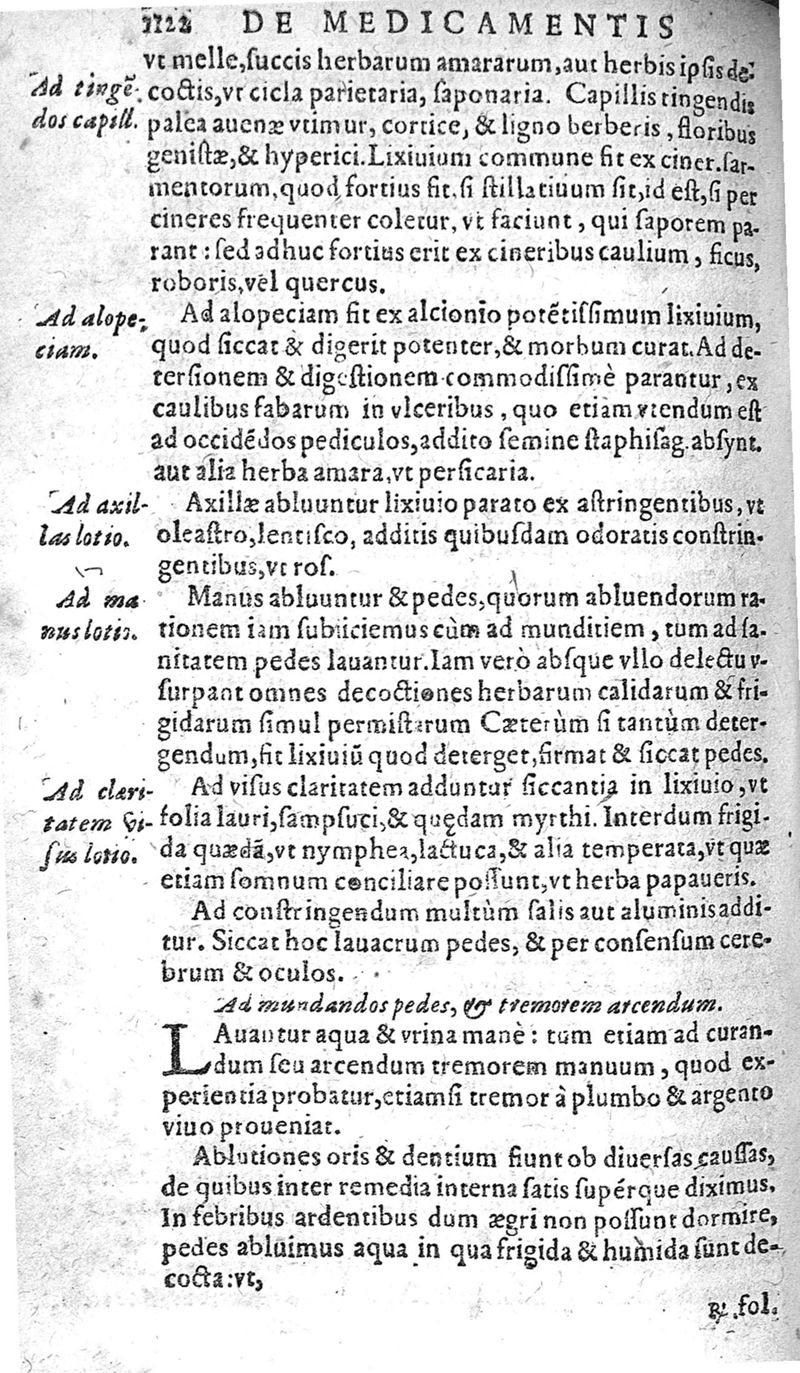 DE MEDICAMENTIS
vt melle, ſuccis herbarum amararum, aut herbis ipſis de-
Ad tingē-
dos capill.
coctis, vt cicla parietaria, ſaponaria. Capillis tingendis
palea auenæ vtimur, cortice, & ligno berberis, floribus
geniſtæ, & hyperici. Lixiuium commune fit ex ciner. ſar-
mentorum, quod fortius fit, ſi ſtillatiuum ſit, id eſt, ſi per
cineres frequenter coletur, vt faciunt, qui ſaporem pa-
rant: ſed adhuc fortius erit ex cineribus caulium, ficus,
roboris, vel quercus.
Ad alope-
ciam.
Ad alopeciam fit ex alcionio potẽtiſſimum lixiuium,
quod ſiccat & digerit potenter, & morbum curat. Ad de-
terſionem & digeſtionem commodiſſimè parantur, ex
caulibus fabarum in vlceribus, quo etiam vtendum eſt
ad occidẽdos pediculos, addito ſemine ſtaphiſag. abſynt.
aut alia herba amara, vt perſicaria.
Ad axil-
las lotio.
Axillæ abluuntur lixiuio parato ex aſtringentibus, vt
oleaſtro, lentiſco, additis quibuſdam odoratis conſtrin-
gentibus, vt roſ.
Ad ma
nus lotio.
Manus abluuntur & pedes, quorum abluendorum ra-
tionem iam ſubiiciemus cùm ad munditiem, tum ad ſa-
nitatem pedes lauantur. Iam verò abſque vllo delectu v-
ſurpant omnes decoctiones herbarum calidarum & fri-
gidarum ſimul permiſtarum Cæterùm ſi tantùm deter-
gendum, fit lixiuiũ quod deterget, firmat & ſiccat pedes.
Ad clari-
tatem vi-
ſus lotio.
Ad viſus claritatem adduntur ſiccantia in lixiuio, vt
folia lauri, ſampſuci, & quędam myrthi. Interdum frigi-
da quædã, vt nymphea, lactuca, & alia temperata, vt quæ
etiam ſomnum conciliare poſſunt, vt herba papaueris.
Ad conſtringendum multùm ſalis aut aluminis addi-
tur. Siccat hoc lauacrum pedes, & per conſenſum cere-
brum & oculos.
Ad mundandos pedes, & tremorem arcendum.
LAuantur aqua & vrina manè: tum etiam ad curan-
dum ſeu arcendum tremorem manuum, quod ex-
perientia probatur, etiamſi tremor à plumbo & argento
viuo proueniat.
Ablutiones oris & dentium fiunt ob diuerſas cauſſas,
de quibus inter remedia interna ſatis ſupérque diximus.
In febribus ardentibus dum ægri non poſſunt dormire,
pedes abluimus aqua in qua frigida & humida ſunt de-
cocta: vt,
℞. fol.